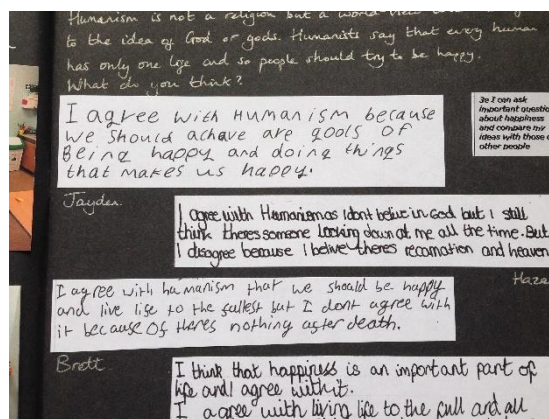 Humanism is not a religion but a world view
to the idea of God or gods. Humanists say that every human
has only one life and so people should try to be happy.
What do you think?
I agree with Humanism because
we should achave are gools of
Being happy and doing things
that makes us happy.
3e I can ask
important questio
about happiness
and compare my
ideas with those o
other people
Jayden.
I agree with Humanism as I dont belive in God but I still
think theres someone looking down at me all the time. But
I disagree because I belive theres recarnation and heaven
Haza
I agree with humanism that we should be happy
and live life to the fullest but I dont agree with
it because of theres nothing after death.
Brett
I think that happiness is an important part of
life and I agree with it.
I agree with living life to the full and all